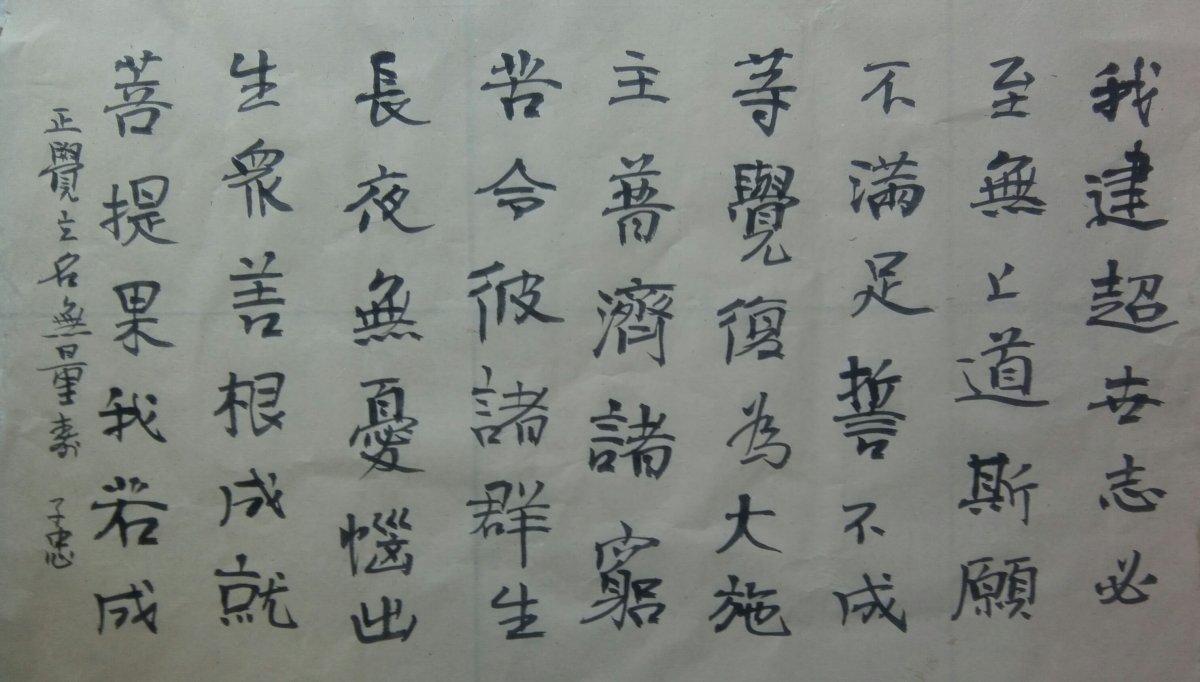 我建超世志必
至無上道斯願
不滿足誓不成
等覺復為大施
主普濟諸窮
苦令彼諸群生
長夜無憂惱出
生眾善根成就
菩提果我若成
正覺立名無量壽 子忠